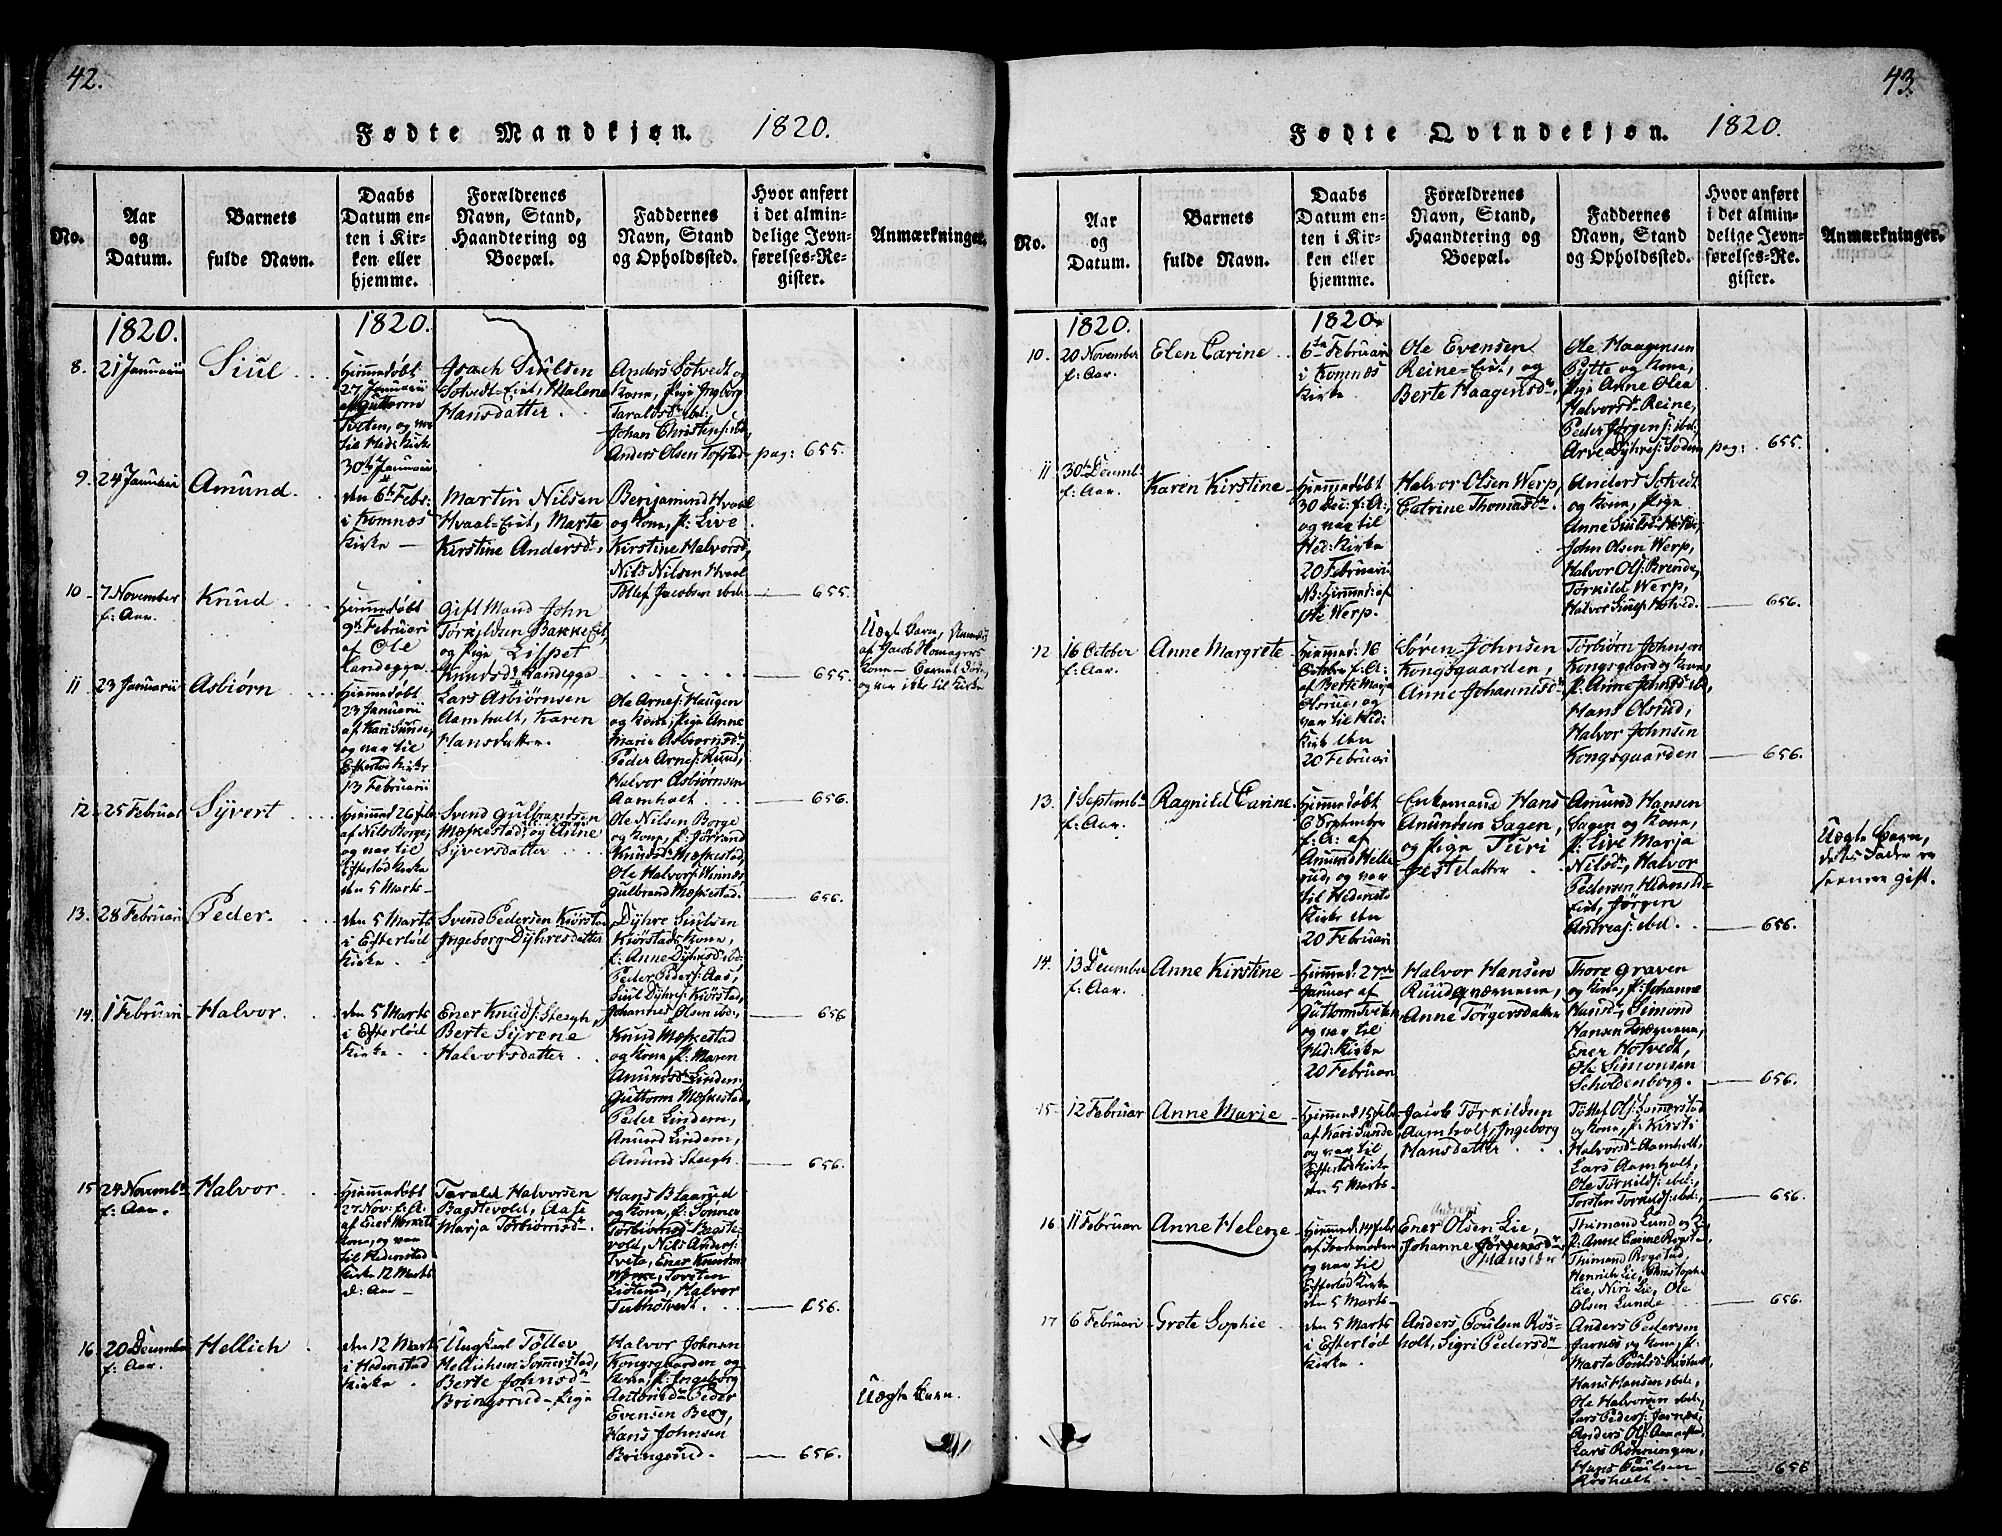 42.
Fødte Mandkjøn. 1820.
No.
Aar
og
Datum.
Barnets
fulde Navn.
Daabs
Datum en-
ten i Kir-
ken eller
hjemme.
Forældrenes
Navn, Stand,
Haandtering og
Boepæl.
Faddernes
Navn, Stand
og Opholdssted.
Hvor anført
i det almin-
delige Jevn-
førelses-Re-
gister.
Anmærkninger.
1820.
1820.
8.
21 Januarii
Siul
Hjemmedøbt
27 Januarii
af Guttorm
Tveten, og var
til Heds Kirke
30te Januarii
Isach Siulsen
Sotvedt-Eiet, Malene
Hansdatter
Anders Sotvedt og
Kone, Pige Ingborg
Taraldsdr ibd:,
Johan Christens: ibd,
Anders Olsen Tofstad
pag: 655.
9.
24 Januarii
Amund.
den 6te Febr:
i Komnæs
Kirke
Martin Nilsen
Hvaal-Eiet, Marte
Kirstine Andersdr,
Benjamin Hvaal
og Kone, P: Live
Kirstine Halvorsd,
Nils Nilsen Hvaal
Tollef Jacobsen ibd:
655.
10
7 November
f: Aar.
Knud
Hjemmedøbt
9de Februari
af Ole
Landegga
Gift Mand John
Torkildsen Bakke Eiet,
og Pige Lispet
Knudsdr Landegge
655.
Uægte Barn,
af Jacob
Kone - Barnet døde,
og var ikke til Kirke
11
23 Januarii
Asbiørn
Hjemmedøbt
23 Januarii
af Kari Sunde,
og var til
Efteløt Kirke
13 Februarii
Lars Asbiørnsen
Aamholt, Karen
Hansdatter
Ole Arnes: Haugen
og Kone, Pige Anne
Marie Asbiørnsdr,
Peder Arnes: Ruud,
Halvor Asbiørnsen
Aamholt
656.
12
25 Februar
Syvert
Hjemmed 26 Feb
af Nils Borge,
og var til
Efteløt Kirke
den 5 Marts
Svend Gulbrandsen
Mæskestad, og Anne
Syversdatter
Ole Nilsen Borge
og Kone, P: Jørrand
Knudsdr Mæskestad,
Ole Halvors: Winnæs
Gulbrand Mæskestad.
656.
13.
28 Februari
Peder.
den 5 Marts
i Efteløt
Kirke
Svend Pedersen Kiørstad
Ingeborg Dyhresdatter
Dyhre Siulsen
Kiørstads Kone,
P: Anne Dyhresdr ibd:
Peder Peders: Aas,
Siul Dyhres: Kiørstad,
Johannes Olsen ibd:,
656
14.
1 Februari
Halvor.
den 5 Marts
i Efteløt
Kirke
Ener Knuds: Steegh,
Berte Syrene
Halvorsdatter
Knud Mæskestad
og Kone, P: Maren
Amundsdr Lindem,
Guttorm Mæskestad,
Peder Lindem,
Amund Lindem,
Amund Steegh.
656.
15
24 Novembr
f: Aar.
Halvor
Hjemmedøbt
27 Nov: f: A:
af Ener
Kone, og var
til Hedenstad
Kirke 12 Marts
d: Aar
Tarald Halvorsen
Bagstevold, Aase
Marja Torbiørnsdr
Hans Blaarud
og Kone, P: Gunner
Torbiørnsdr Bagste-
vold, Nils Anders:
Tveta, Ener Knudsen
Torsten
Halvor
656.
16
20 December
f: Aar.
Hellich
den 12 Marts
i Hedenstad
Kirke
Ungkarl Tollev
Hellichsen Sommerstad,
Berte Johnsdr
Bringsrud Pige
Halvor Johnsen
Kongsgaarden og
Kone, P: Ingeborg
Peder
Evensen Berg,
Hans Johnsen
Bringsrud.
656.
Uægte Barn.
43.
Fødte Qvindekjøn. 1820.
No.
Aar
og
Datum.
Barnets
fulde Navn.
Daabs
Datum en-
ten i Kir-
ken eller
hjemme.
Forældrenes
Navn, Stand,
Haandtering og
Boepæl.
Faddernes
Navn, Stand
og Opholdssted.
Hvor anført
i det almin-
delige Jevn-
førelses-Re-
gister.
Anmærkninger.
1820.
1820.
10.
20 November
f: Aar.
Elen Carine
6te Februari
i Komnæs
Kirke
Ole Evensen
Reine-Eiet, og
Berte Haagensdr,
Ole Haagensen
Pytte og Kone,
Pige Anne Olea
Halvorsdr Reine,
Peder Jørgens: ibd:
Arve Dyhres: Soden
pag: 655.
11
30te Decembr
f: Aar.
Karen Kirstine
Hjemmedøbt
30 Dec: f: A:,
og var til
Hed: Kirke
20 Februari
NB: Hjemmed: af
Ole Werp.
Halvor Olsen Werp,
Catrine Thomasdr.
Anders Sotvedt
og Kone, Pige
Anne Siulsdr
John Olsen Werp,
Halvor Ols: Brende,
Torkild Werp,
Halvor Siuls: Hotved.
656.
12
16 October
f: Aar.
Anne Margrete
Hjemmed: 16
October f: A:
af Berte Marja
Olsrue, og
var til Hed:
Kirke den
20 Februari
Søren Johnsen
Kongsgaarden,
Anne Johannesdr
Torbiørn Johnsen
Kongsgaard og Kone,
P: Anne Johnsdr ibd,
Hans Olsrud,
Halvor Johnsen
Kongsgaarden
656.
13.
1 Septembr
f: Aar.
Ragnild Carine
Hjemmedøbt
6 Septembr
f: A: af
Amund Helle-
rud, og var
til Hedensta
Kirke den
20 Februari
Enkemand Hans
Amundsen Sagen,
og Pige Turi
Jestdatter
Amund Hansen
Sagen og Kone,
P: Live Marja
Nilsdr, Halvor
Pedersen Hedenstad-
Eiet, Jørgen
Andreas: ibd.
656.
Uægte Barn,
dets Fader er
gift.
14.
13 December
f: Aar.
Anne Kirstine
Hjemmed: 27de
Januar af
Guttorm Tveten
og var til
Hed: Kirke
20 Februari
Halvor Hansen
Ruudqværnene,
Anne Torgersdatter
Thore Graven
og Kone, P: Johanne
Hansdr, Simond
Hansen Qværnene,
Ener Hotvedt,
Ole Simonsen
Scholdenborg.
656.
15.
12 Februar
Anne Marie
Hjemmed 15 Febr
af Kari Sunde
og var til
Efteløt Kirke
den 5 Marts
Jacob Torkildsen
Aamholt, Ingeborg
Hansdatter
Tollef Ols: Sommerstad
og Kone, P: Kirsti
Halvorsdr Aamholt,
Lars Aamholt,
Ole Torkilds: ibd:,
Torsten Torkilds: ibd:,
656.
16.
11 Februar
Anne Helene
Hjemmed: 14 Febr
af Jordemoderen
og var til
Efteløt Kirke
den 5 Marts
Ener Olsen Lie,
Johanne Jørgensdr
Hansdr
Thimand Lund og K:,
P: Anne Carine Rogstad,
Thimand Rogstad,
Henrich Lie, Christophe
Lie, Niri Lie, Ole
Olsen Lunde
656.
17
6 Februari
Grete Sophie
den 5 Marts
i Efteløt
Kirke.
Anders Poulsen Røs-
holt, Sigri Pedersdr
Anders Pedersen
Jarnæs og Kone, P:
Marte Poulsdr
Hans Hansen ibd:,
Ole Halvorsen ibd:,
Lars Peders: Jarnæs,
Anders Ols:
Lars
Hans Poulsen
Røsholt
656